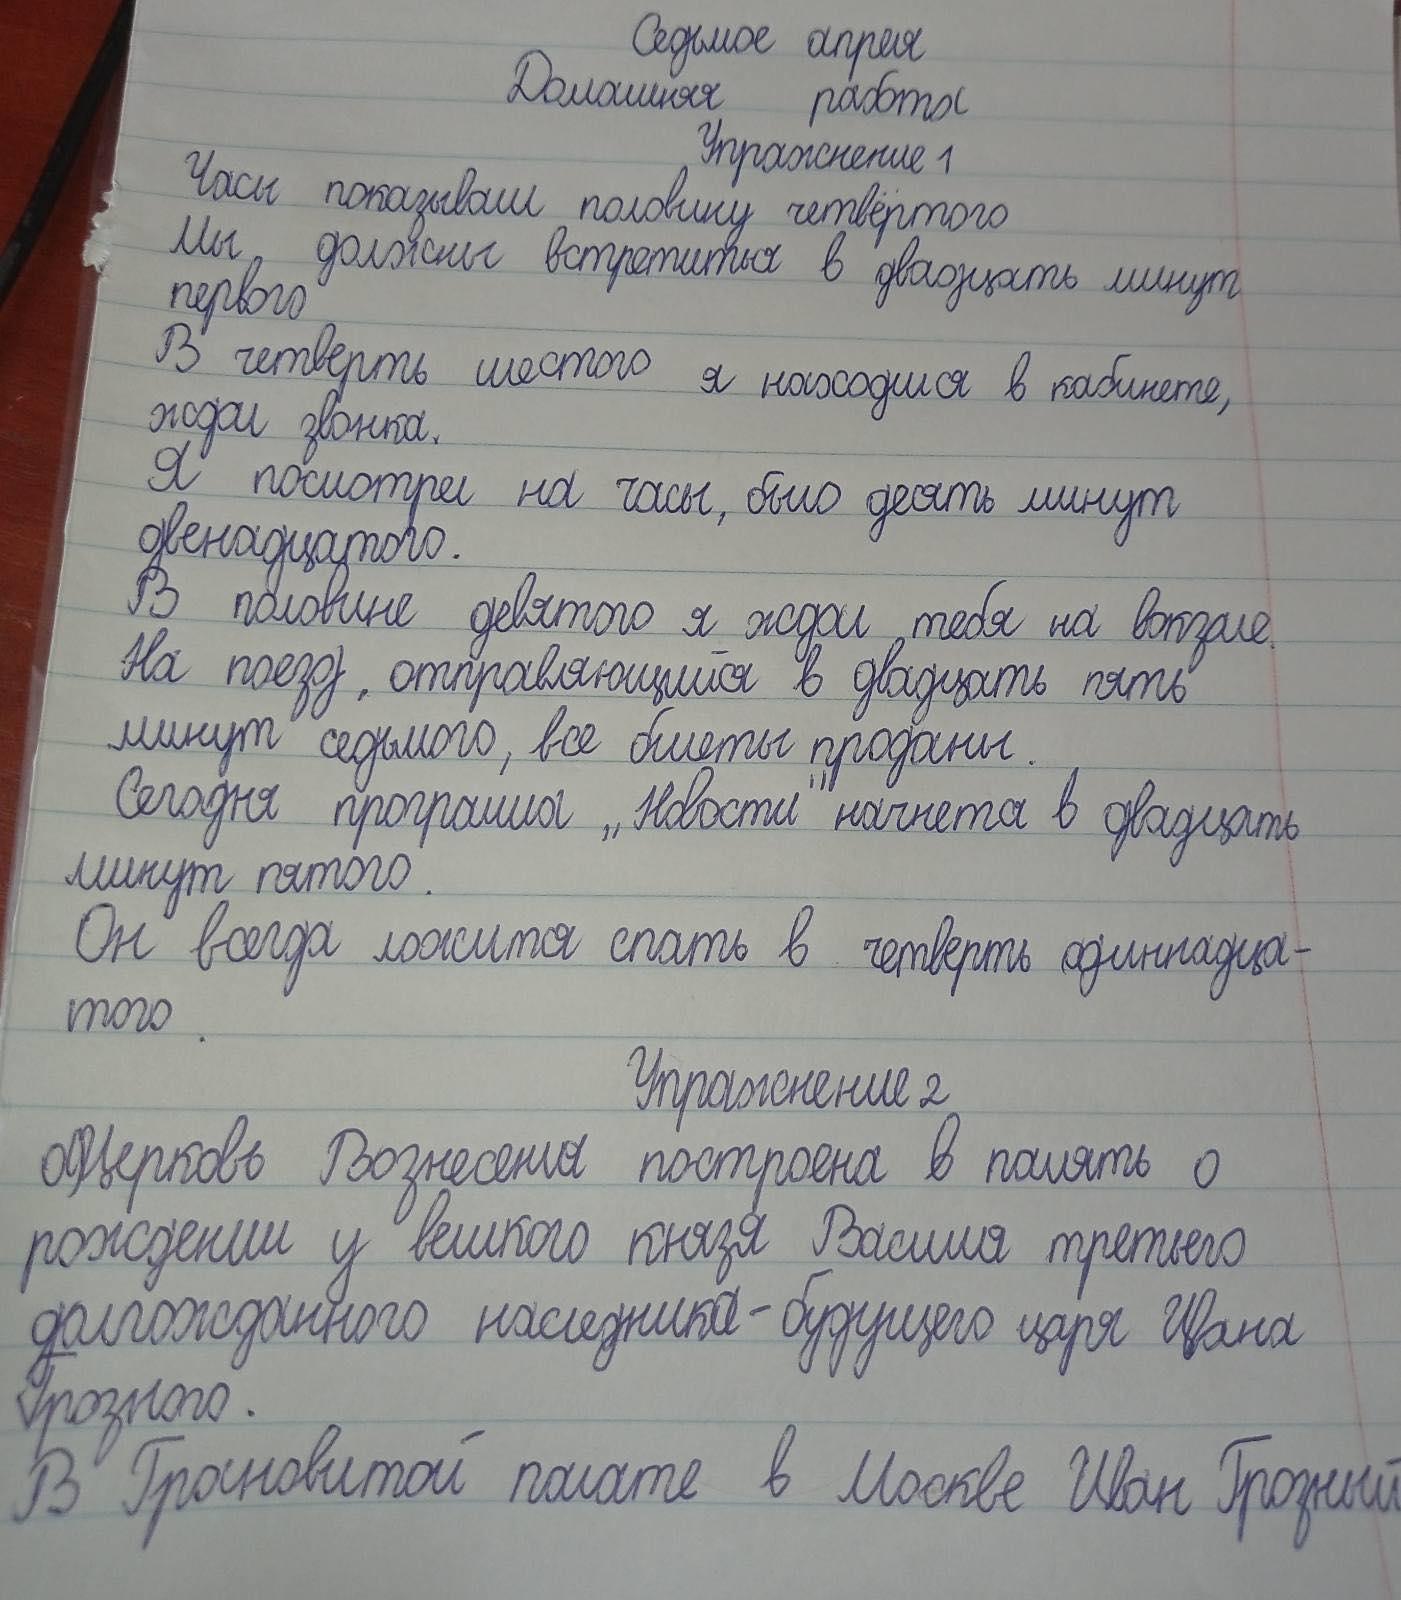 Седьмое апреля
Домашняя работа
Упражнение 1
Часы показывали половину четвёртого
Мы должны встретиться в двадцать минут
первого
В четверть шестого я находился в кабинете,
ждал звонка.
Я посмотрел на часы, было десять минут
двенадцатого.
В половине девятого я ждал тебя на вокзале.
На поезд, отправляющийся в двадцать пять
минут седьмого, все билеты проданы.
Сегодня программа „Новости" начнется в двадцать
минут пятого.
Он всегда ложится спать в четверть одиннадца-
того.
Упражнение 2
Церковь Вознесения построена в память о
рождении у великого князя Василия третьего
долгожданного наследника-будущего царя Ивана
Грозного.
В Грановитой палате в Москве Иван Грозный